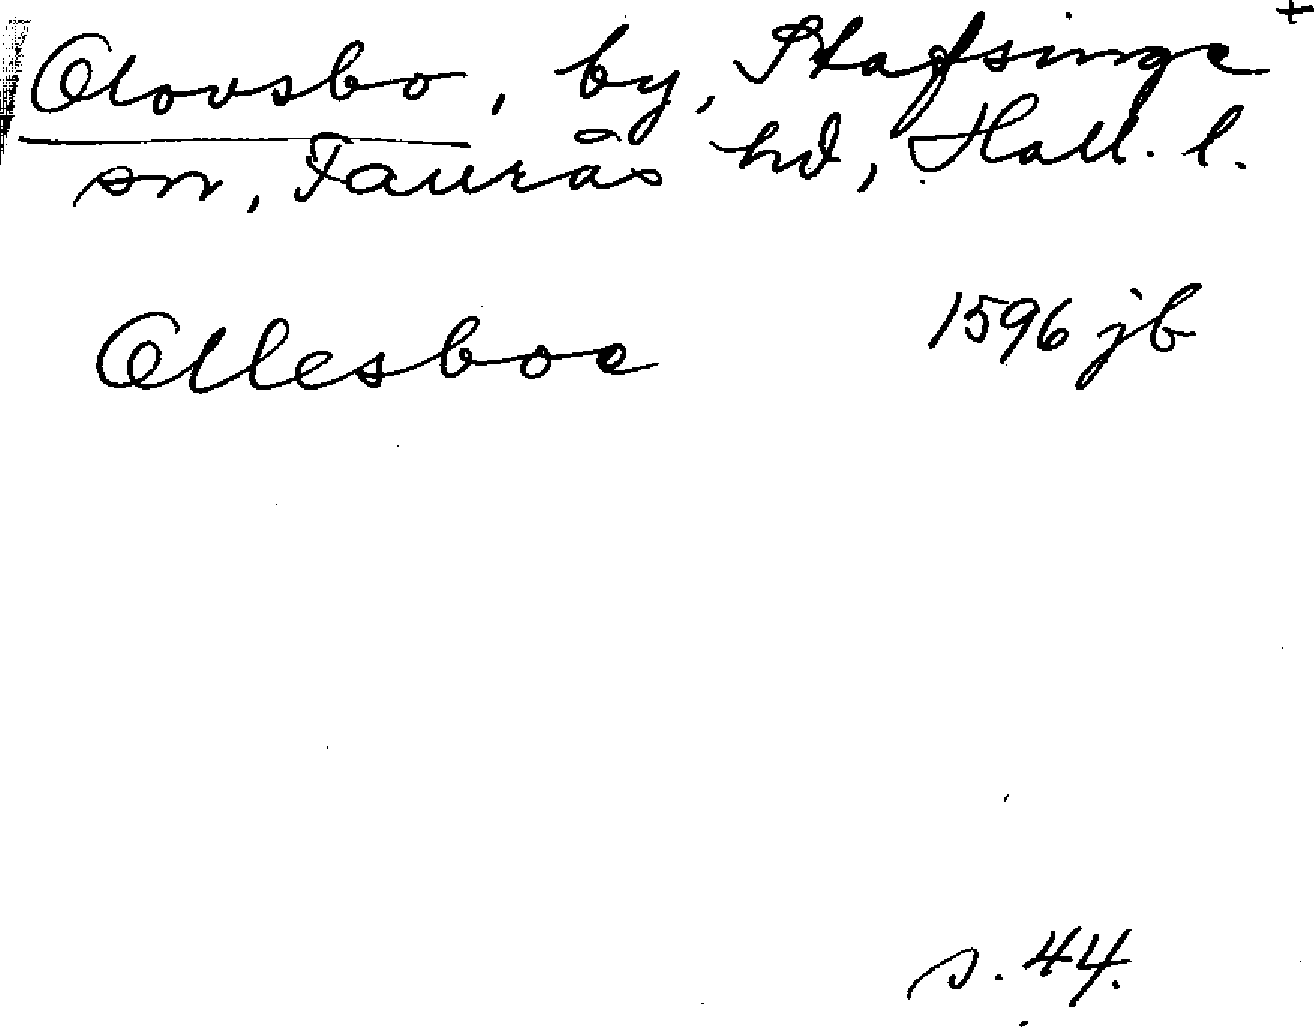 +
Olovsbo, by, Stafsinge
sn, Faurås hd, Hall. l.
Ollesboe 1596 jb
s. 44.